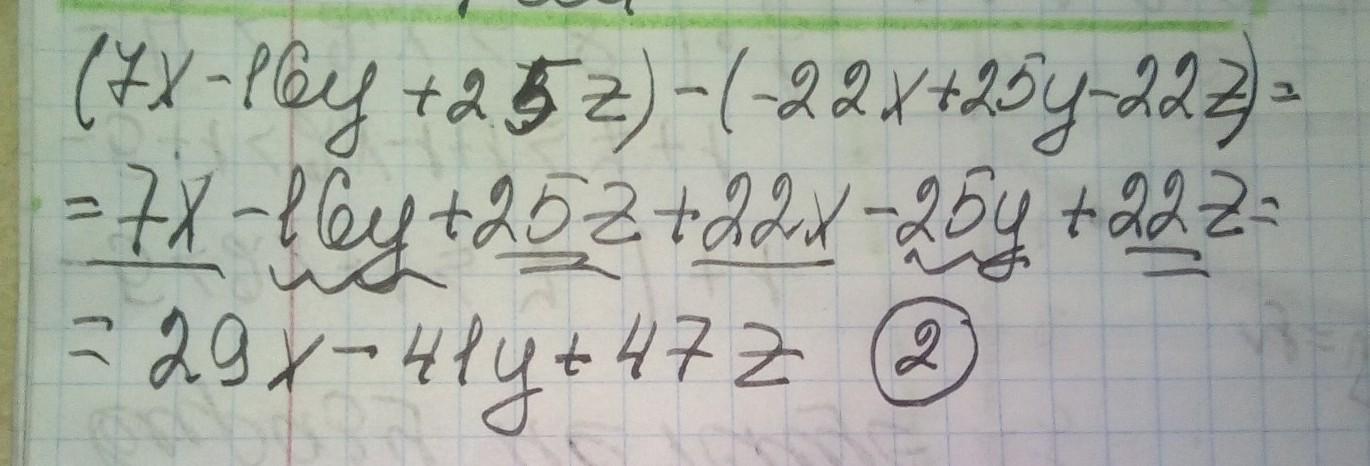 (7x-16y+25z)-(-22x+25y-22z)=
=7x-16y+25z+22x-25y+22z=
=29x-41y+47z 2